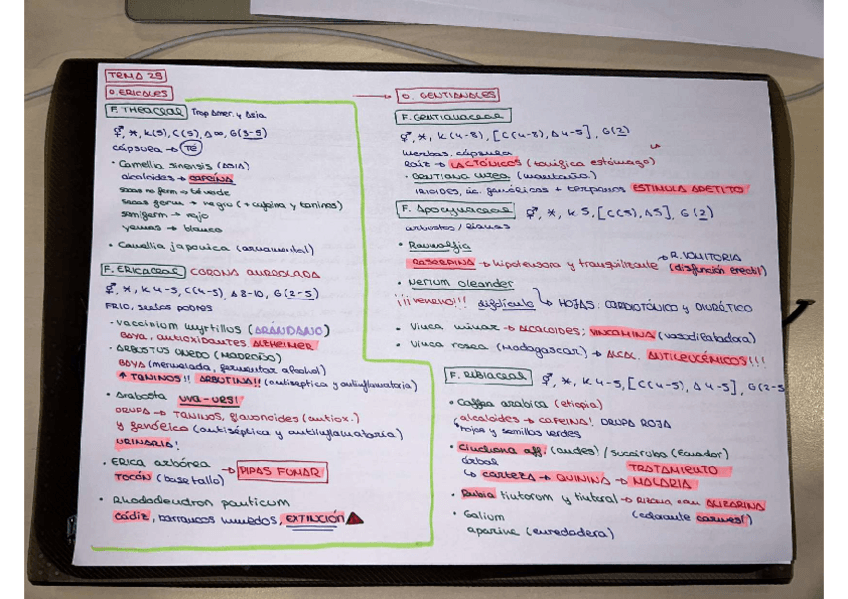 TEMA 25
O. ERICALES
F. THEACEAE Trop Amer. y Asia
⚥, *, K(5), C(5), A∞, G(3-5)
cápsula → TÉ
• Camellia sinensis (ASIA)
alcaloides → CAFEÍNA
secas no ferm → té verde
secas ferm → negro (+ cafeína y taninos)
semiferm → rojo
yemas → blanco
• Camellia japonica (ornamental)
F. ERICACEAE COROLA URCEOLADA
⚥, *, K 4-5, C(4-5), A 8-10, G(2-5)
FRÍO, suelos pobres
• Vaccinium myrtillus (ARÁNDANO)
BAYA, antioxidantes ALZHEIMER
• ARBUTUS UNEDO (MADROÑO)
BAYA (mermelada, fermentar alcohol)
↑ TANINOS!! ARBUTINA!! (antiséptica y antiinflamatoria)
• Arabosta uva-ursi!
DRUPA → TANINOS, flavonoides (antiox.)
y genólica (antiséptica y antiinflamatoria)
URINARIA!
• ERICA arbórea
→ PIPAS FUMAR
TOCÓN (base tallo)
• Rhododendron ponticum
Cádiz, barrancos húmedos, EXTINCIÓN
→ O. GENTIANALES
F. GENTIANACEAE
⚥, *, K(4-8), [C(4-8), A 4-5], G(2)
hierbas, cápsula
Raíz → LACTÓNICOS (tonifica estómago)
• GENTIANA lutea (montaña)
IRIDOIDES, ác. fenólicos + terpenos ESTIMULA APETITO
F. Apocynaceae ⚥, *, K 5, [C(5), A5], G(2)
arbustos / lianas
• Rauwolfia
→ R. VOMITORIA
RESERPINA → hipotensora y tranquilizante (disfunción erectil)
• Nerium oleander
¡¡¡veneno!!! → HOJAS: CARDIOTÓNICO y DIURÉTICO
• Vinca minor → ALCALOIDES; VINCAMINA (vasodilatadora)
• Vinca rosea (Madagascar) → ALCAL. ANTILEUCÉMICOS!!!
F. RUBIACEAE ⚥, *, K 4-5, [C(4-5), A 4-5], G(2-5
• Coffea arabica (etiopia)
alcaloides → CAFEINA! DRUPA ROJA
hojas y semillas verdes
• Cinchona aff. (andes) / succirubra (Ecuador)
árbol TRATAMIENTO
↳ corteza → QUININA → MALARIA
• Rubia tinctorum y tintoral → Rizoma con ALIZARINA
(colorante carmesí)
• Galium
aparine (enredadera)